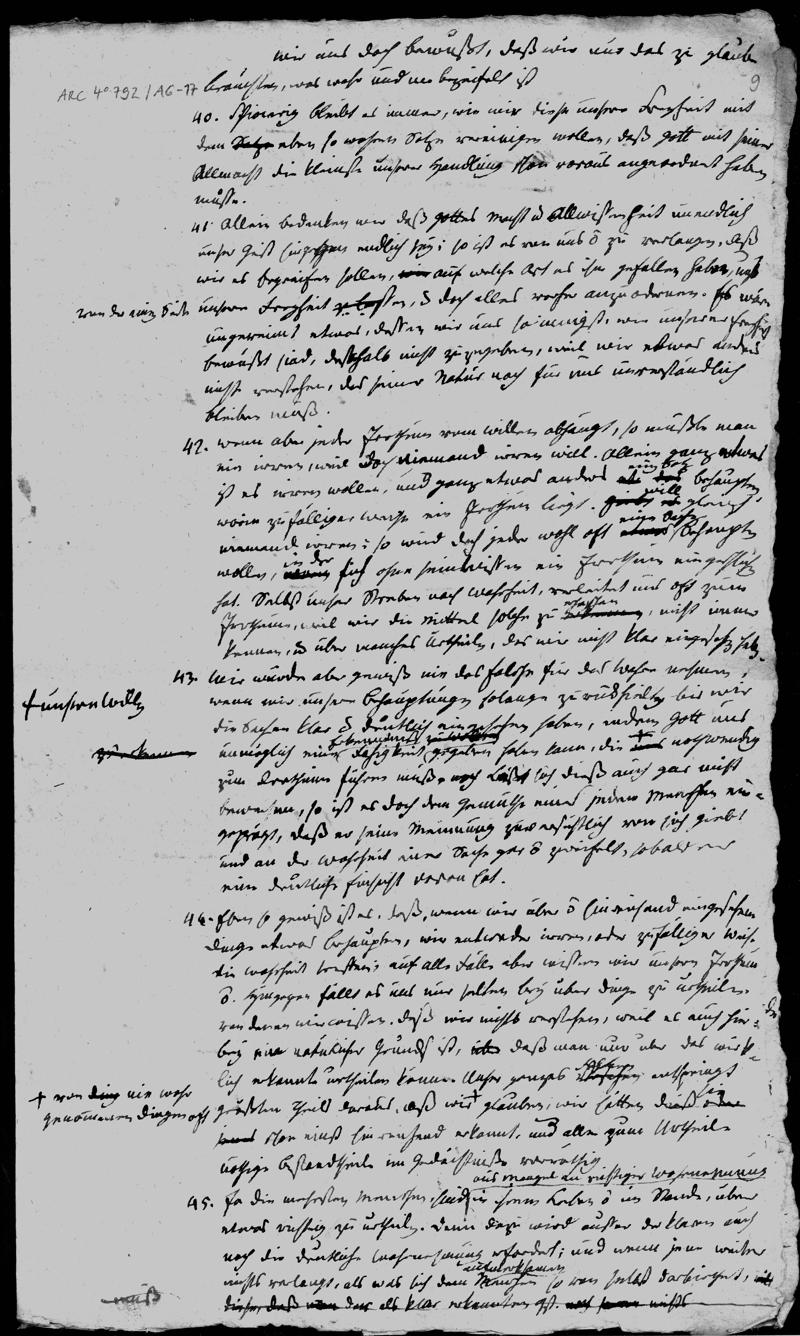 wir uns doch bewußt, daß wir nur das zu glaube
9
ARC 4º 792 / A6-17
brauchten, was wahr und unbezweifelt ist
40. Schwierig bleibt es immer, wie wir diese unsere Freyheit mit
dem eben so wahren Satze vereinigen wollen, daß Gott mit seiner
Allmacht die kleinste unserer Handlung schon voraus angeordnet haben
müsse.
41. Allein bedenken wir daß Gottes Macht u Allwissenheit unendlich
unser Geist hingegen endlich sey; so ist es von uns ō zu verlangen, daß
wir es begreifen sollen, auf welche Art es ihm gefallen habe, uns
von der einen Seite
unsere Freyheit zu lassen, u doch alles vorher anzuordnen. Es wäre
ungereimt etwas, dessen wir uns so innigst, wie unserer Freyheit
bewußt sind, deßhalb nicht zuzugeben, weil wir etwas anders
nicht verstehen, das seiner Natur nach für uns unverständlich
bleiben muß.
42. Wenn aber jeder Irrthum vom Willen abhängt, so müßte man
nie irren, weil doch niemand irren will. Allein ganz etwas
ist es irren wollen, und ganz etwas anders behaupten
worin zufälliger weise ein Irrthum liegt. will gleich
niemand irren; so wird doch jeder wohl oft eine Sache behaupten
wollen, in der sich ohne sein Wissen ein Irrthum eingeschlichen
hat. Selbst unser Streben nach Wahrheit, verleitet uns oft zum
Irrthume, weil wir die Mittel solche zu erhalten, nicht immer
kennen, u über manches urtheilen, das wir nicht klar eingesehen haben.
43. Wir würden aber gewiß nie das Falsche für das Wahre nehmen,
wenn wir unsere Behauptungen solange zurückhielten bis wir
+ unsern Willen
die Sachen klar u deutlich eingesehen haben, indem Gott uns
unmöglich eine Fähigkeit gegeben haben kann, die + nothwendig
zum Irrthume führen müßte. Läßt sich dieß auch gar nicht
beweisen, so ist es doch dem Gemüthe eines jeden Menschen ein-
geprägt, daß er seine Meinung zuversichtlich von sich giebt
und an der Wahrheit einer Sache gar ō zweifelt, sobald er
eine deutliche Einsicht davon hat.
44. Eben so gewiß ist es, daß, wenn wir über ō hinreichend eingesehene
Dinge etwas behaupten, wir entweder irren, oder zufälliger Weise
die Wahrheit treffen; auf alle Fälle aber wissen wir unsern Irrthum
ō. Hingegen fällt es uns nur selten bey über Dinge zu urtheilen,
von denen wir wissen, daß wir nichts verstehen, weil es auch hier-
bey natürlicher Grundsatz ist, daß man nur über das wirk-
lich erkannte urtheilen könne. Unser entspringt
+ von nie wahr
genommenen Dingen oft
größten Theils daraus, daß wir + glauben, wir hätten sie
schon einst hinreichend erkannt, und alle zum Urtheile
nöthige Bestandtheile im Gedächtniße vorräthig
aus Mangel an richtiger Wahrnehmung
45. Ja die mehresten Menschen sind in ihrem Leben ō im Stande, über
etwas richtig zu urtheilen. Denn dazu wird außer der klaren auch
noch die deutliche Wahrnehmung erfordert; und wenn jene weiter
nichts verlangt, als was sich dem aufmerksamen Menschen so von selbst darbiethet,